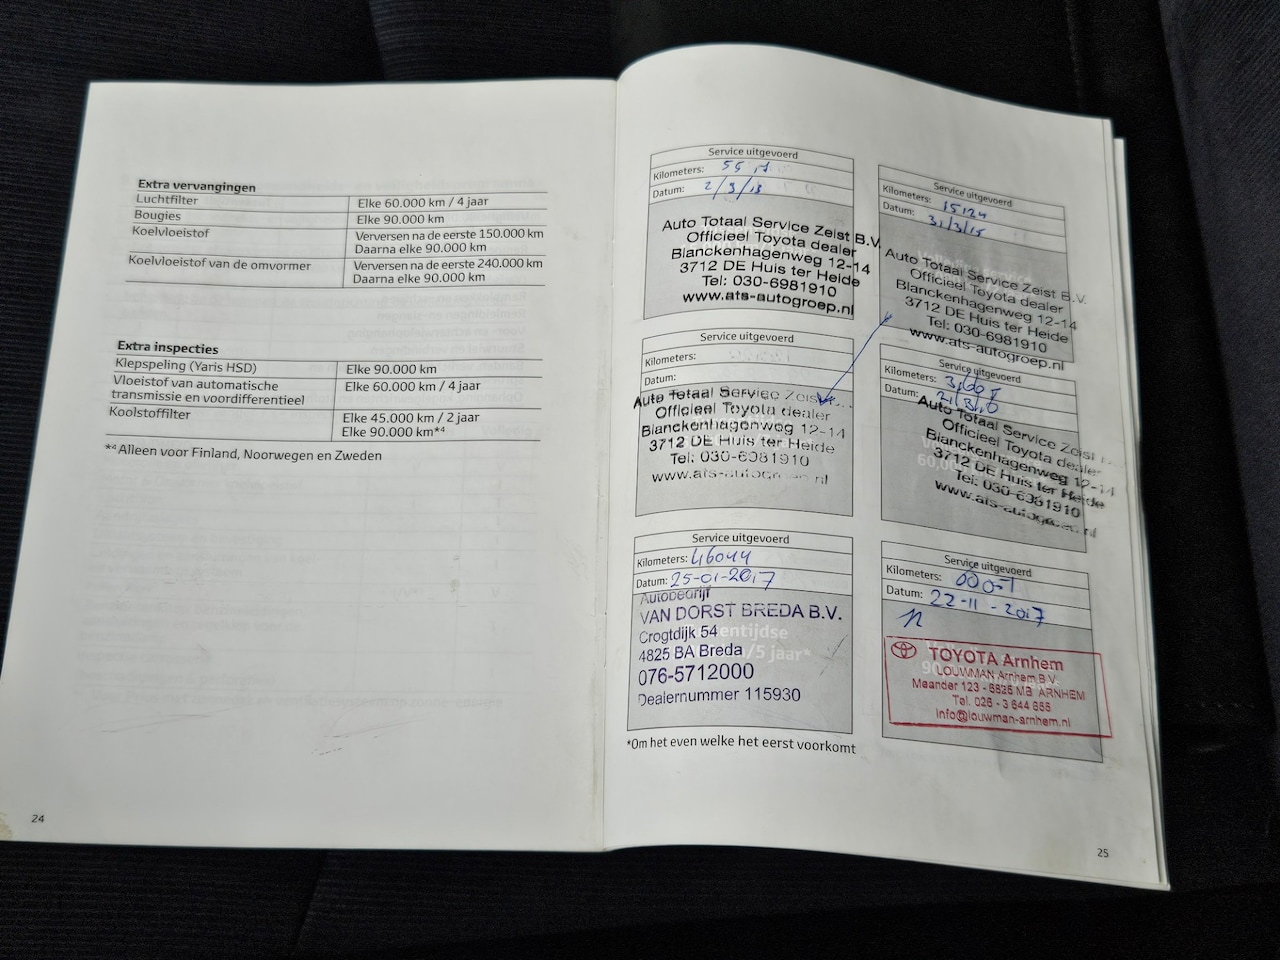 Extra vervangingen
Luchtfilter Elke 60.000 km / 4 jaar
Bougies Elke 90.000 km
Koelvloeistof Verversen na de eerste 150.000 km
Daarna elke 90.000 km
Koelvloeistof van de omvormer Verversen na de eerste 240.000 km
Daarna elke 90.000 km
Extra inspecties
Klepspeling (Yaris HSD) Elke 90.000 km
Vloeistof van automatische
transmissie en voordifferentieel Elke 60.000 km / 4 jaar
Koolstoffilter Elke 45.000 km / 2 jaar
Elke 90.000 km*4
*4 Alleen voor Finland, Noorwegen en Zweden
24
Service uitgevoerd
Kilometers:
Datum: 2/3/13
Auto Totaal Service Zeist B.V.
Officieel Toyota dealer
Blanckenhagenweg 12-14
3712 DE Huis ter Heide
Tel: 030-6981910
www.ats-autogroep.nl
Service uitgevoerd
Kilometers: 15124
Datum: 31/3/15
Auto Totaal Service Zeist B.V.
Officieel Toyota dealer
Blanckenhagenweg 12-14
3712 DE Huis ter Heide
Tel: 030-6981910
www.ats-autogroep.nl
Service uitgevoerd
Kilometers:
Datum:
Auto Totaal Service Zeist
Officieel Toyota dealer
Blanckenhagenweg 12-14
3712 DE Huis ter Heide
Tel: 030-6981910
www.ats-autogroep.nl
Service uitgevoerd
Kilometers:
Datum:
Auto Totaal Service Zeist
Officieel Toyota dealer
Blanckenhagenweg 12-14
3712 DE Huis ter Heide
Tel: 030-6981910
www.ats-autogroep.nl
Service uitgevoerd
Kilometers: 46044
Datum: 25-01-2017
Autobedrijf
VAN DORST BREDA B.V.
Crogtdijk 54
4825 BA Breda
076-5712000
Dealernummer 115930
Service uitgevoerd
Kilometers:
Datum: 22-11-2017
TOYOTA Arnhem
LOUWMAN Arnhem B.V.
Meander 123 - 6825 MB ARNHEM
Tel. 026 - 3 644 666
info@louwman-arnhem.nl
*Om het even welke het eerst voorkomt
25